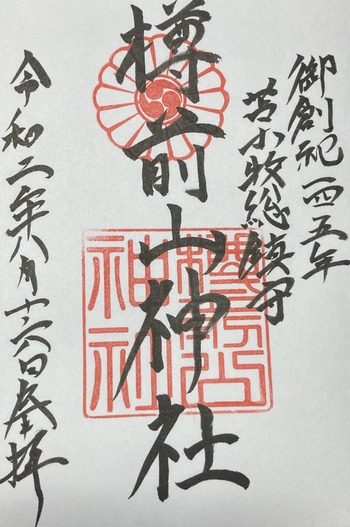 御創祀一四五年
苫小牧総鎮守
樽前山神社
樽前山
神社
令和二年八月十六日奉拝